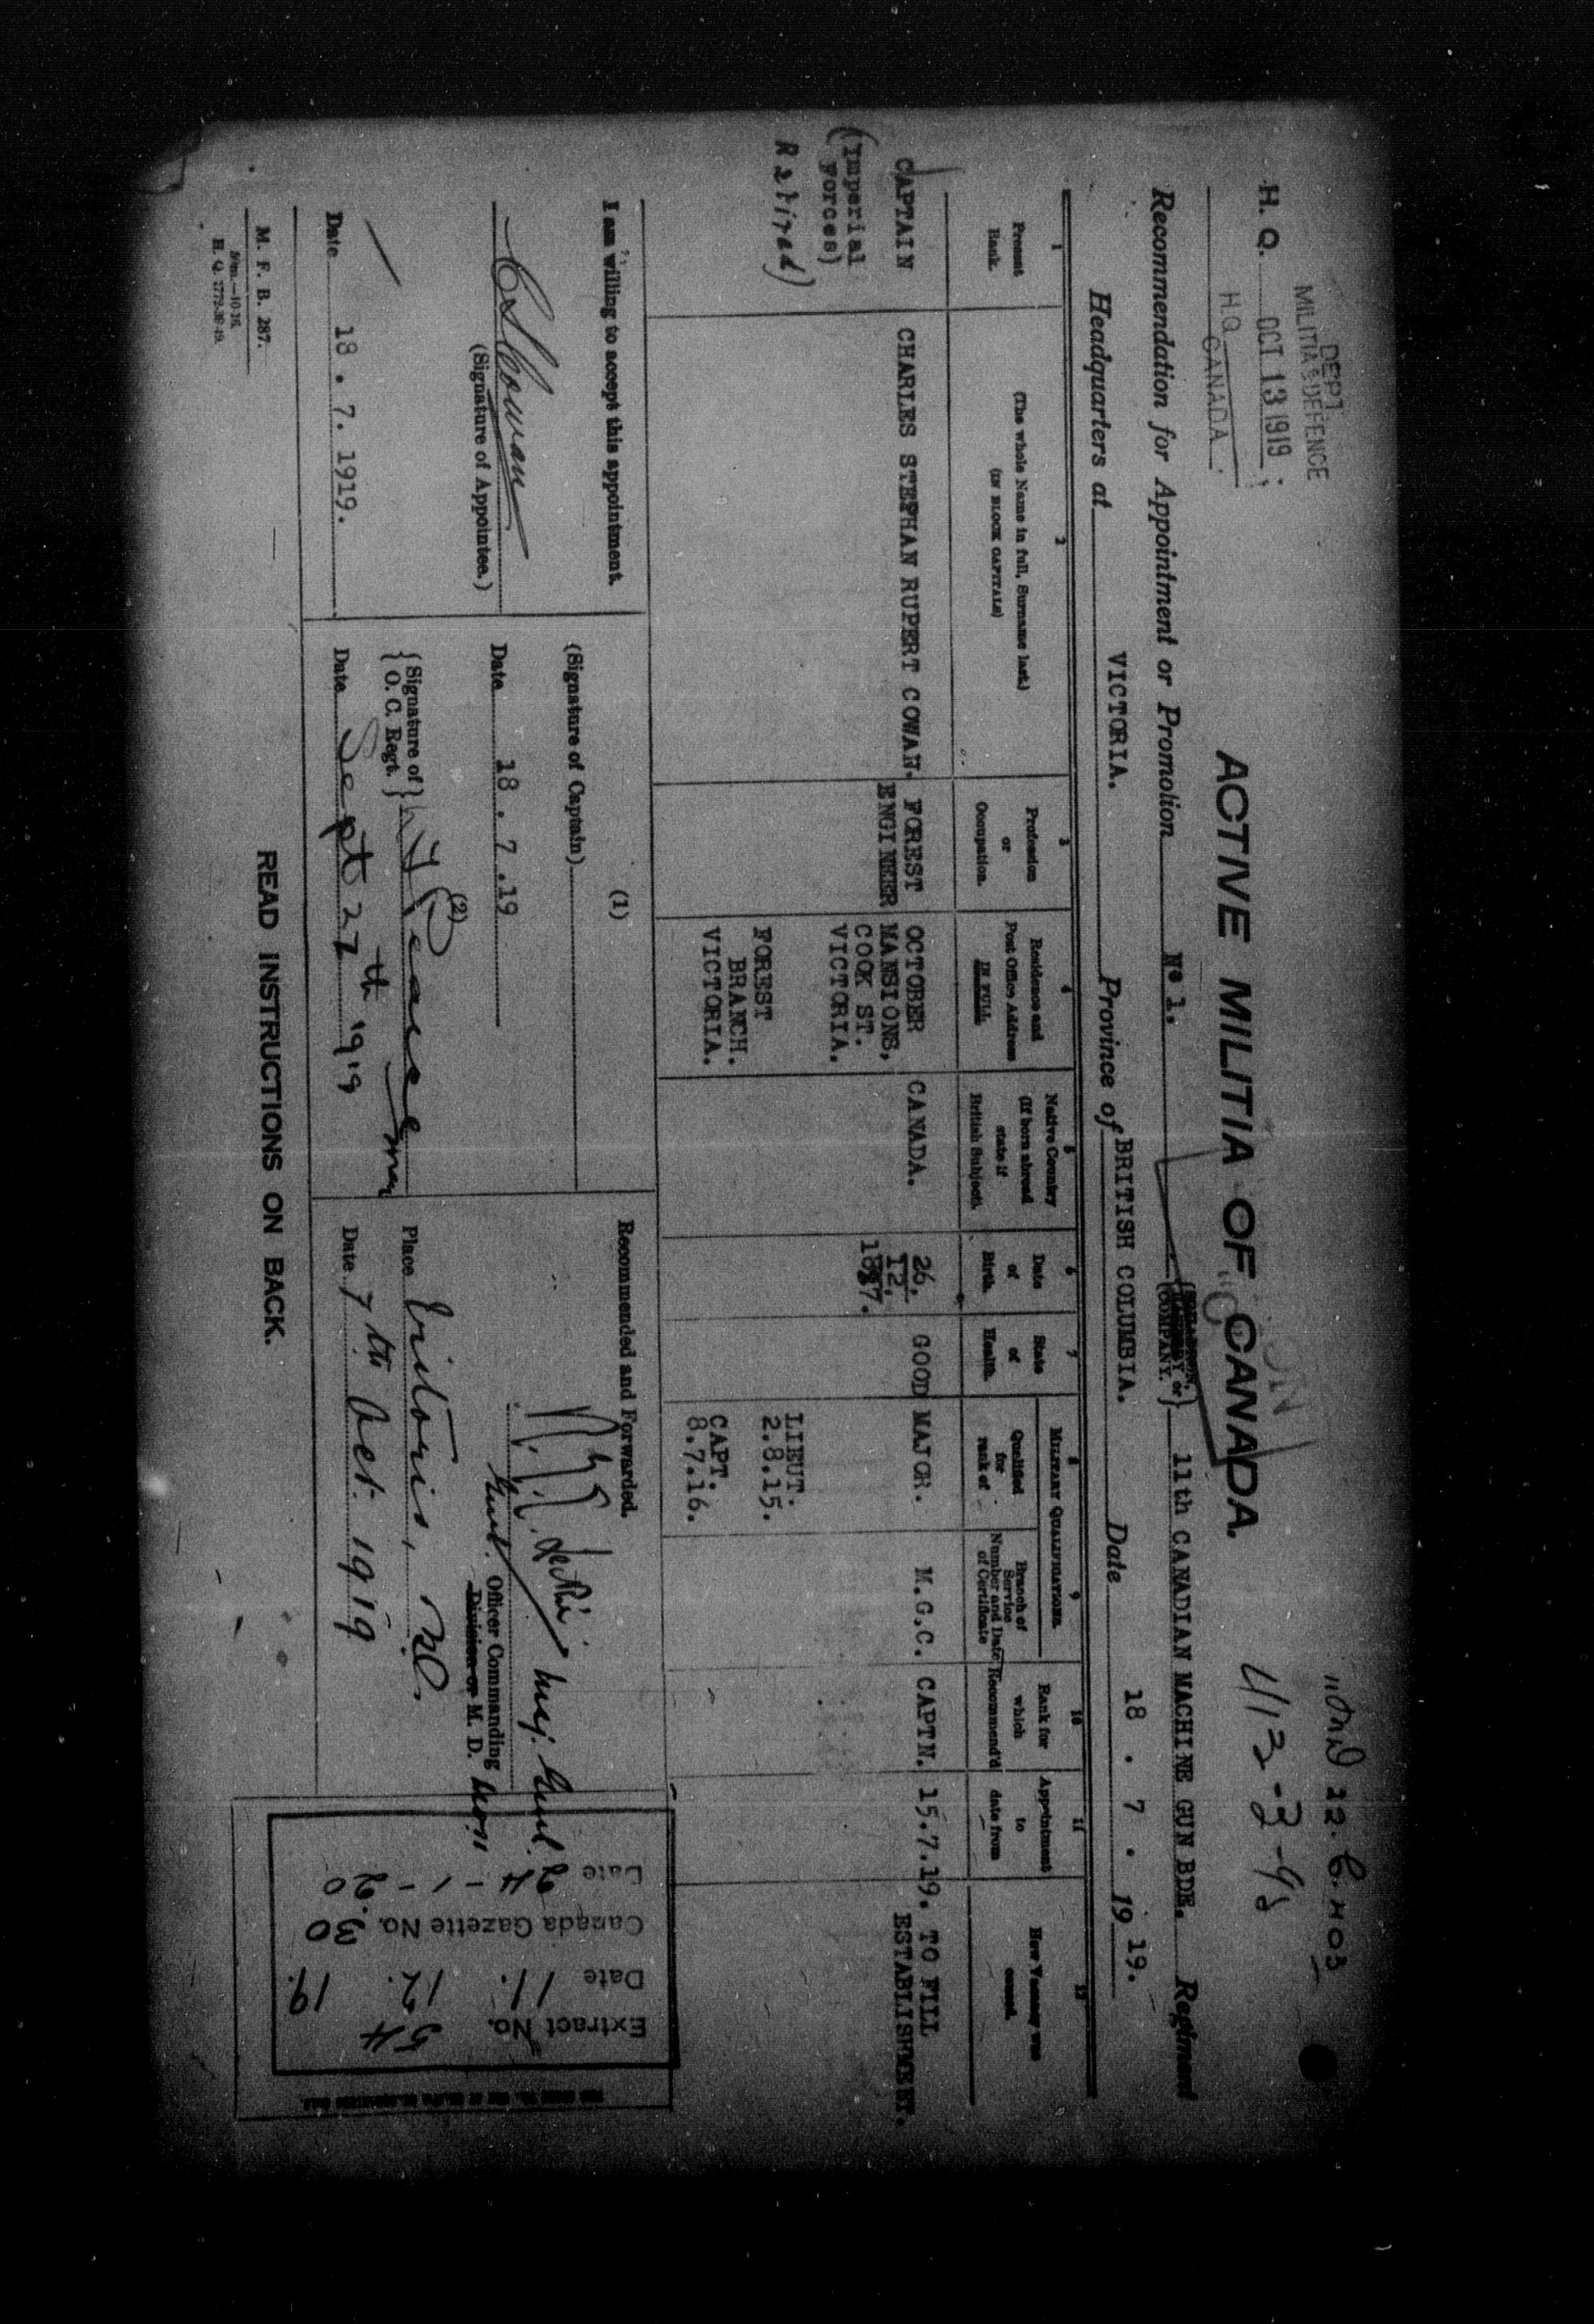 DEPT.
MILITIA & DEFENCE
H. Q. OCT 13 1919
H.Q.
CANADA.
ACTIVE MILITIA OF CANADA.
413-3-98
Recommendation for Appointment or Promotion Nº 1. COMPANY. 11th CANADIAN MACHINE GUN BDE. Regiment
Headquarters at VICTORIA. Province of BRITISH COLUMBIA. Date 18 . 7 . 19 19.
1 Present Rank.
2 (The whole Name in full, Surname last.) (IN BLOCK CAPITALS)
3 Profession or Occupation.
4 Residence and Post Office Address IN FULL.
5 Native Country (If born abroad state if British Subject).
6 Date of Birth.
7 State of Health.
MILITARY QUALIFICATIONS.
8 Qualified for rank of
9 Branch of Service Number and Date of Certificate
10 Rank for which Recommend'd
11 Appointment to date from
12 How Vacancy was caused.
CAPTAIN
(Imperial
Forces)
Retired)
CHARLES STEPHAN RUPERT COWAN.
FOREST
ENGINEER
OCTOBER
MANSIONS,
COOK ST.
VICTORIA.
FOREST
BRANCH.
VICTORIA.
CANADA.
26.
12.
1887.
GOOD
MAJOR.
LIEUT.
2.8.15.
CAPT.
8.7.16.
M.G.C.
CAPTN.
15.7.19.
TO FILL
ESTABLISHMENT.
I am willing to accept this appointment.
CSCowan
(Signature of Appointee.)
Date 18 . 7. 1919.
(1)
(Signature of Captain)
Date 18 . 7 .19
(2)
{Signature of
O. C. Regt.}
Date Sept 27th 1919
Recommended and Forwarded.
Officer Commanding
Division or M. D.
Place Victoria, BC.
Date 7th Oct. 1919
Extract No. 54
Date 11. 12. 19.
Canada Gazette No. 30
Date 24-1-20
M. F. B. 287.
H. Q. 1772-39-49.
READ INSTRUCTIONS ON BACK.